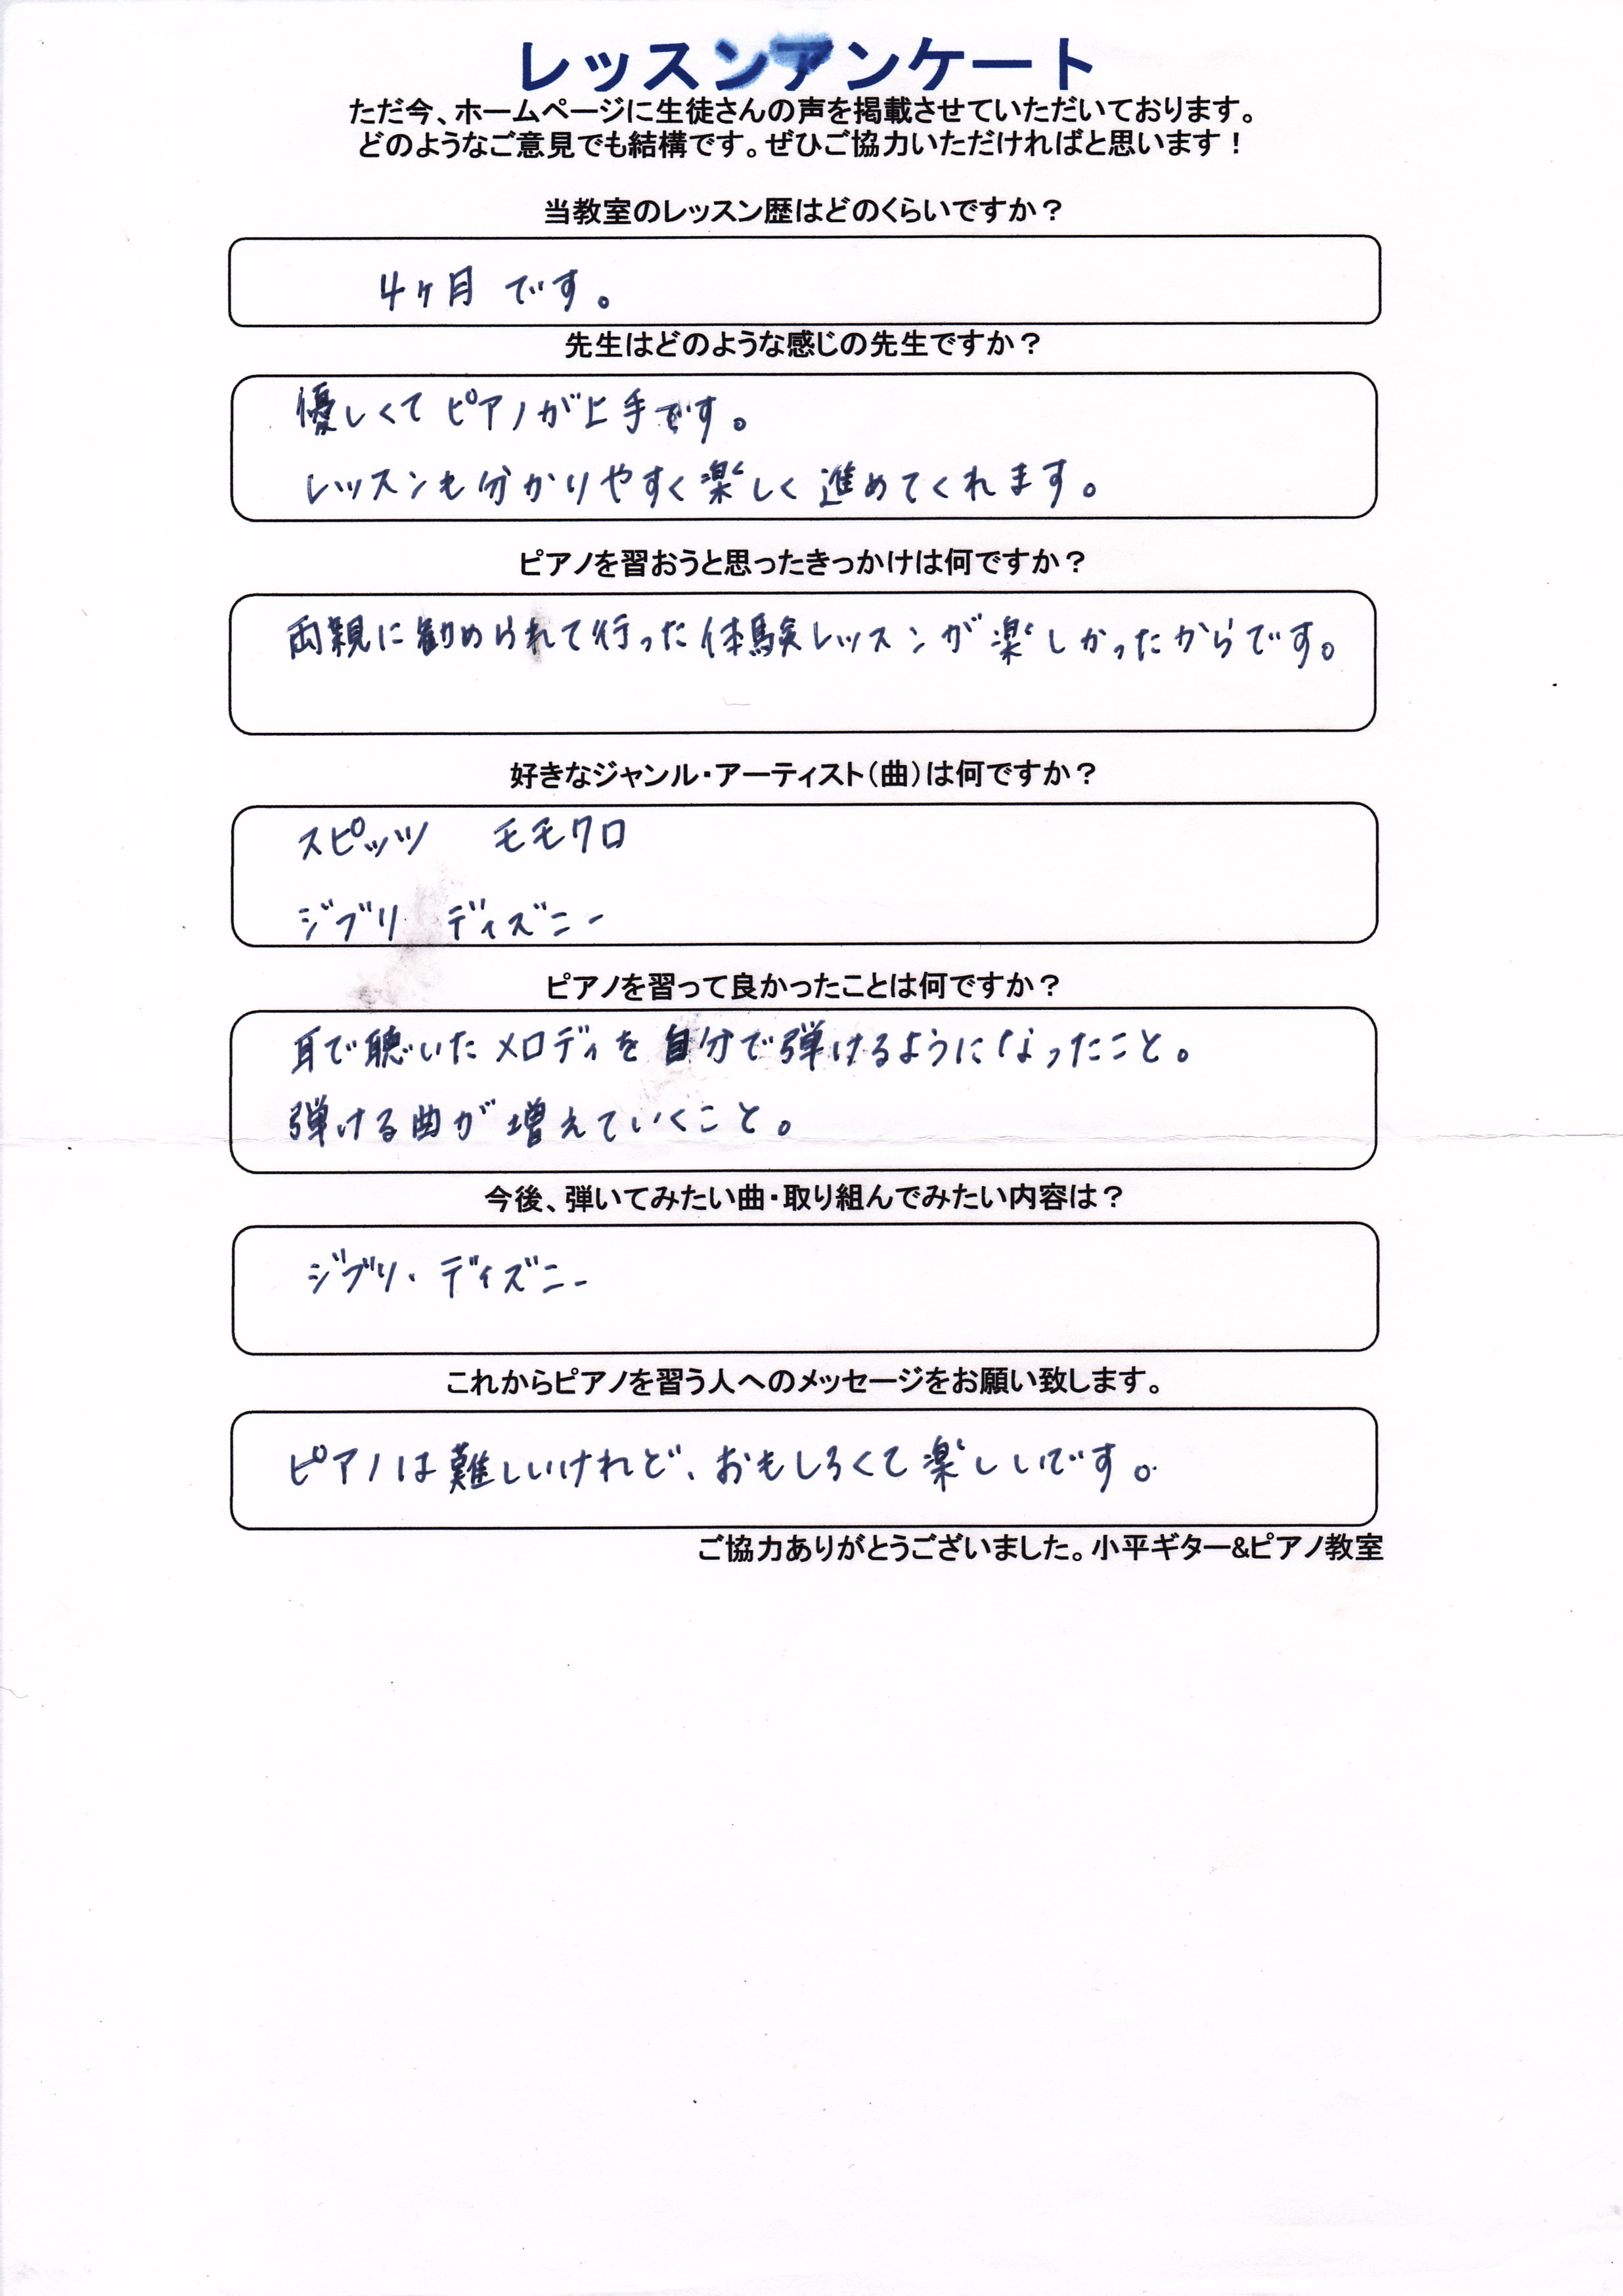 レッスンアンケート
ただ今、ホームページに生徒さんの声を掲載させていただいております。
どのようなご意見でも結構です。ぜひご協力いただければと思います！
当教室のレッスン歴はどのくらいですか？
4ヶ月です。
先生はどのような感じの先生ですか？
優しくてピアノが上手です。
レッスンも分かりやすく楽しく進めてくれます。
ピアノを習おうと思ったきっかけは何ですか？
両親に勧められて行った体験レッスンが楽しかったからです。
好きなジャンル・アーティスト（曲）は何ですか？
スピッツ　モモクロ
ジブリ　ディズニー
ピアノを習って良かったことは何ですか？
耳で聴いたメロディを自分で弾けるようになったこと。
弾ける曲が増えていくこと。
今後、弾いてみたい曲・取り組んでみたい内容は？
ジブリ・ディズニー
これからピアノを習う人へのメッセージをお願い致します。
ピアノは難しいけれど、おもしろくて楽しいです。
ご協力ありがとうございました。小平ギター&ピアノ教室